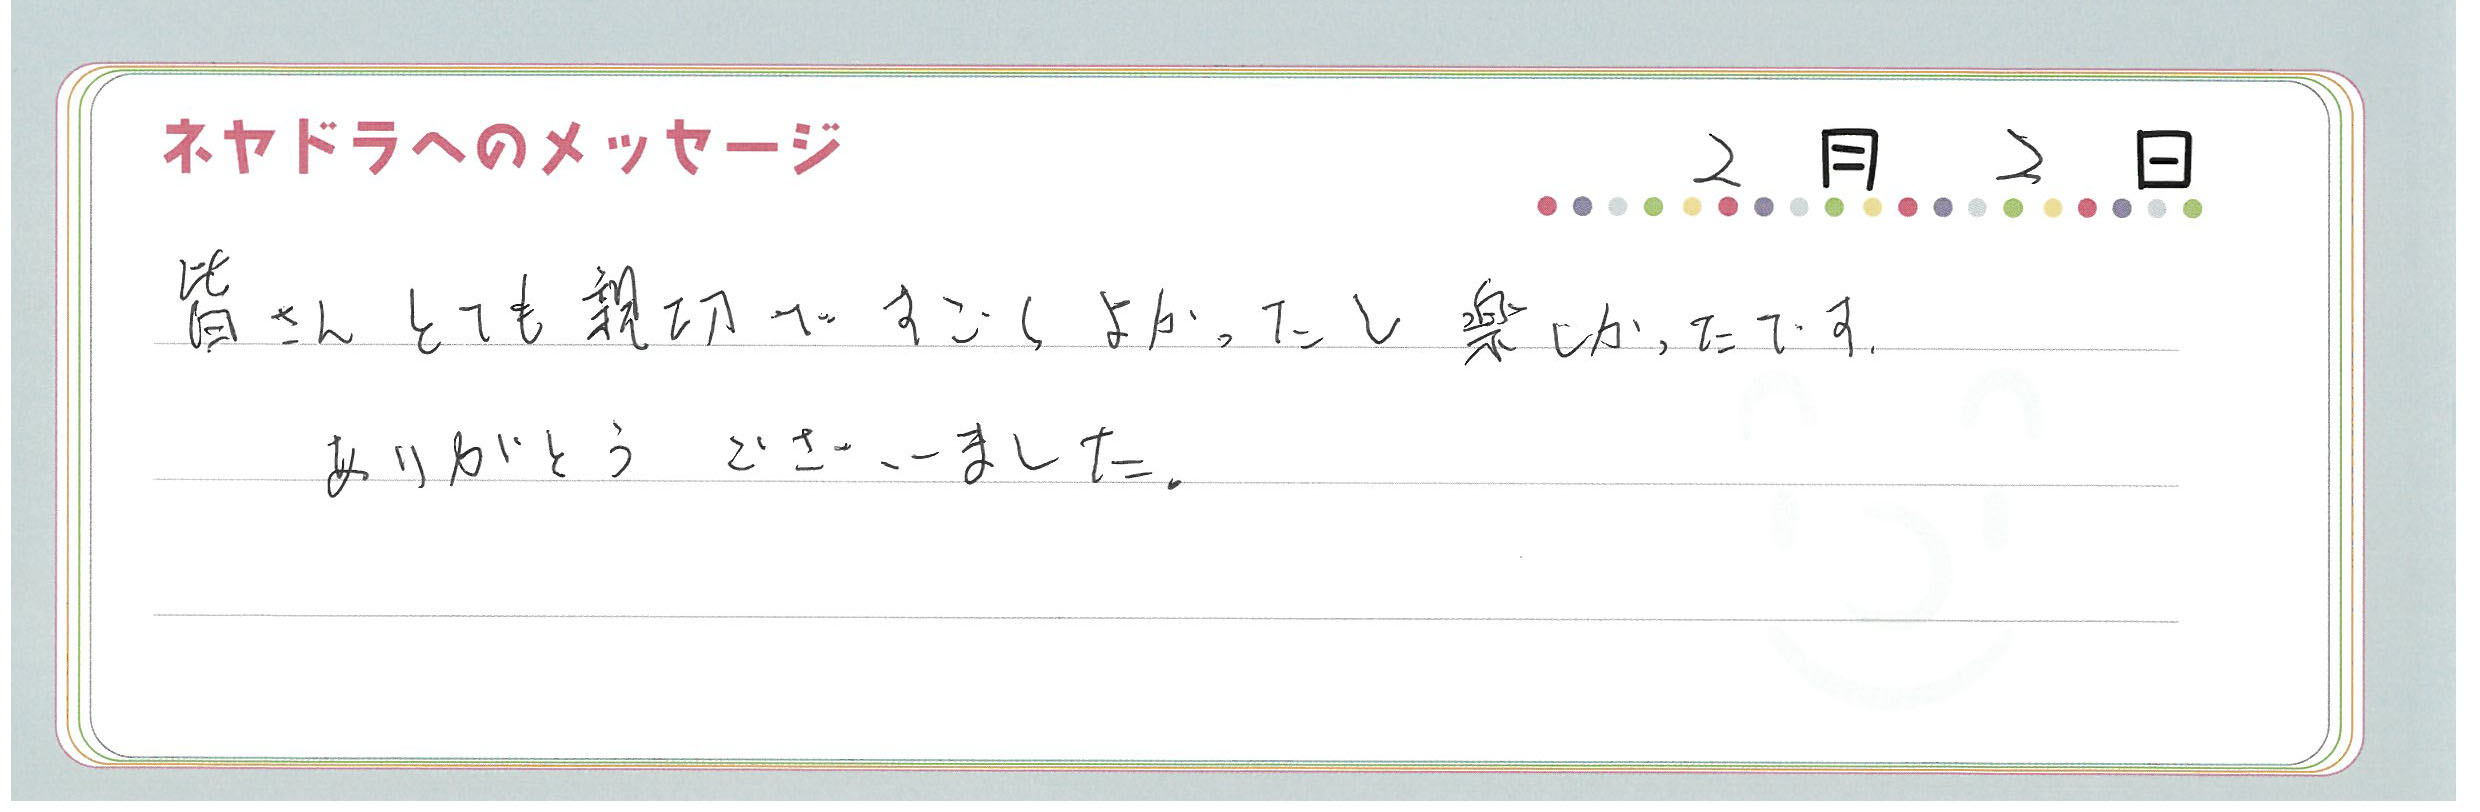 ネヤドラへのメッセージ
2月2日
皆さんとても親切ですごくよかったし楽しかったです.
ありがとうございました。